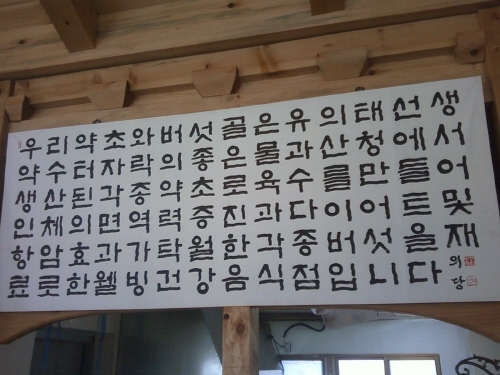 우리약초와버섯골은유의태선생
약수터자락의좋은물과산청에서
생산된각종약초로육수를만들어
인체의면역력증진과다이어트및
항암효과가탁월한각종버섯을재
료로한웰빙건강음식점입니다
의당